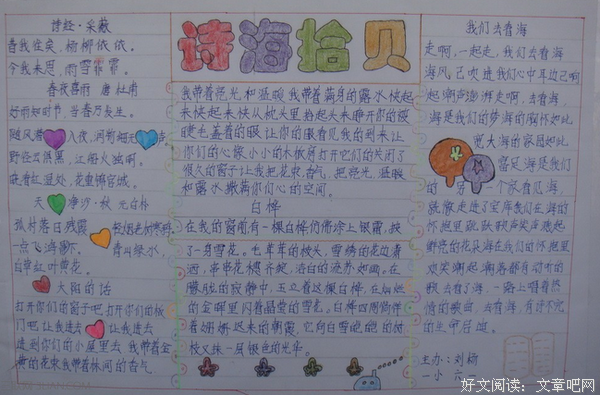 诗海拾贝
诗经·采薇
昔我往矣，杨柳依依。
今我来思，雨雪霏霏。
春夜喜雨 唐 杜甫
好雨知时节，当春乃发生。
随风潜入夜，润物细无声。
野径云俱黑，江船火独明。
晓看红湿处，花重锦官城。
天净沙·秋 元 白朴
孤村落日残霞
轻烟老树寒鸦
一点飞鸿影下
青山绿水，
白草红叶黄花。
太阳的话
打开你们的窗子吧 打开你们的板
门吧 让我进去 让我进去
进到你们的小屋里去 我带着金
黄的花束 我带着林间的香气
我带着亮光和温暖 我带着满身的露水 快起
来快起来 快从枕头里 抬起头来 睁开你的被
睫毛盖着的眼 让你的眼看见我的到来 让
你们的心像小小的木板房 打开它们的关闭了
很久的窗子 让我把花束 香气，把亮光，温暖
和露水 撒满你们心的空间。
白桦
在我的窗前 有一棵白桦 仿佛涂上银霜，披
了一身雪花。毛茸茸的枝头，雪绣的花边潇
洒，串串花穗齐绽，洁白的流苏如画。在
朦胧的寂静中，玉立着这棵白桦，在灿灿
的金晖里 闪着晶莹的雪花。白桦四周徜徉
着姗姗迟来的朝霞，它向白雪皑皑的树
枝 又抹一层银色的光华。
我们去看海
走啊，一起走，我们去看海
海风，已吹进我们心中
起 潮声澎湃 走啊，去看海，
海是我们的
宽大 海的家园如此
富足 海是我们
的
就像走进了宝库 我们在海的
怀抱里
鲜亮的花朵 海在我们的怀抱里
欢笑 潮起潮落都有动听的
歌，去看了海，一路上唱着热
情的歌曲，去看海，有诉不完
的
主办：刘杨
一小 六一
好文阅读：文章吧网